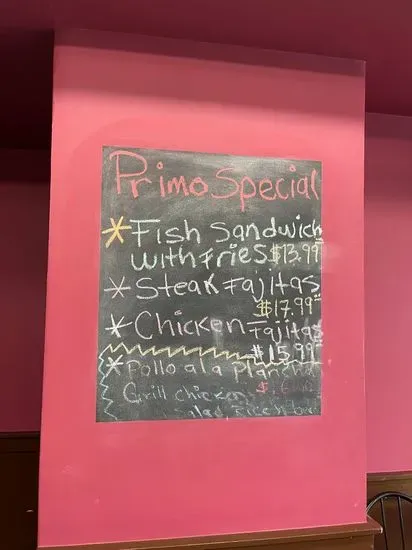 Primo Special
* Fish Sandwich
with Fries $13.99
* Steak Fajitas
$17.99
* Chicken Fajitas
$15.99
* Pollo a la Plancha
Grill chicken $
Salad Rice